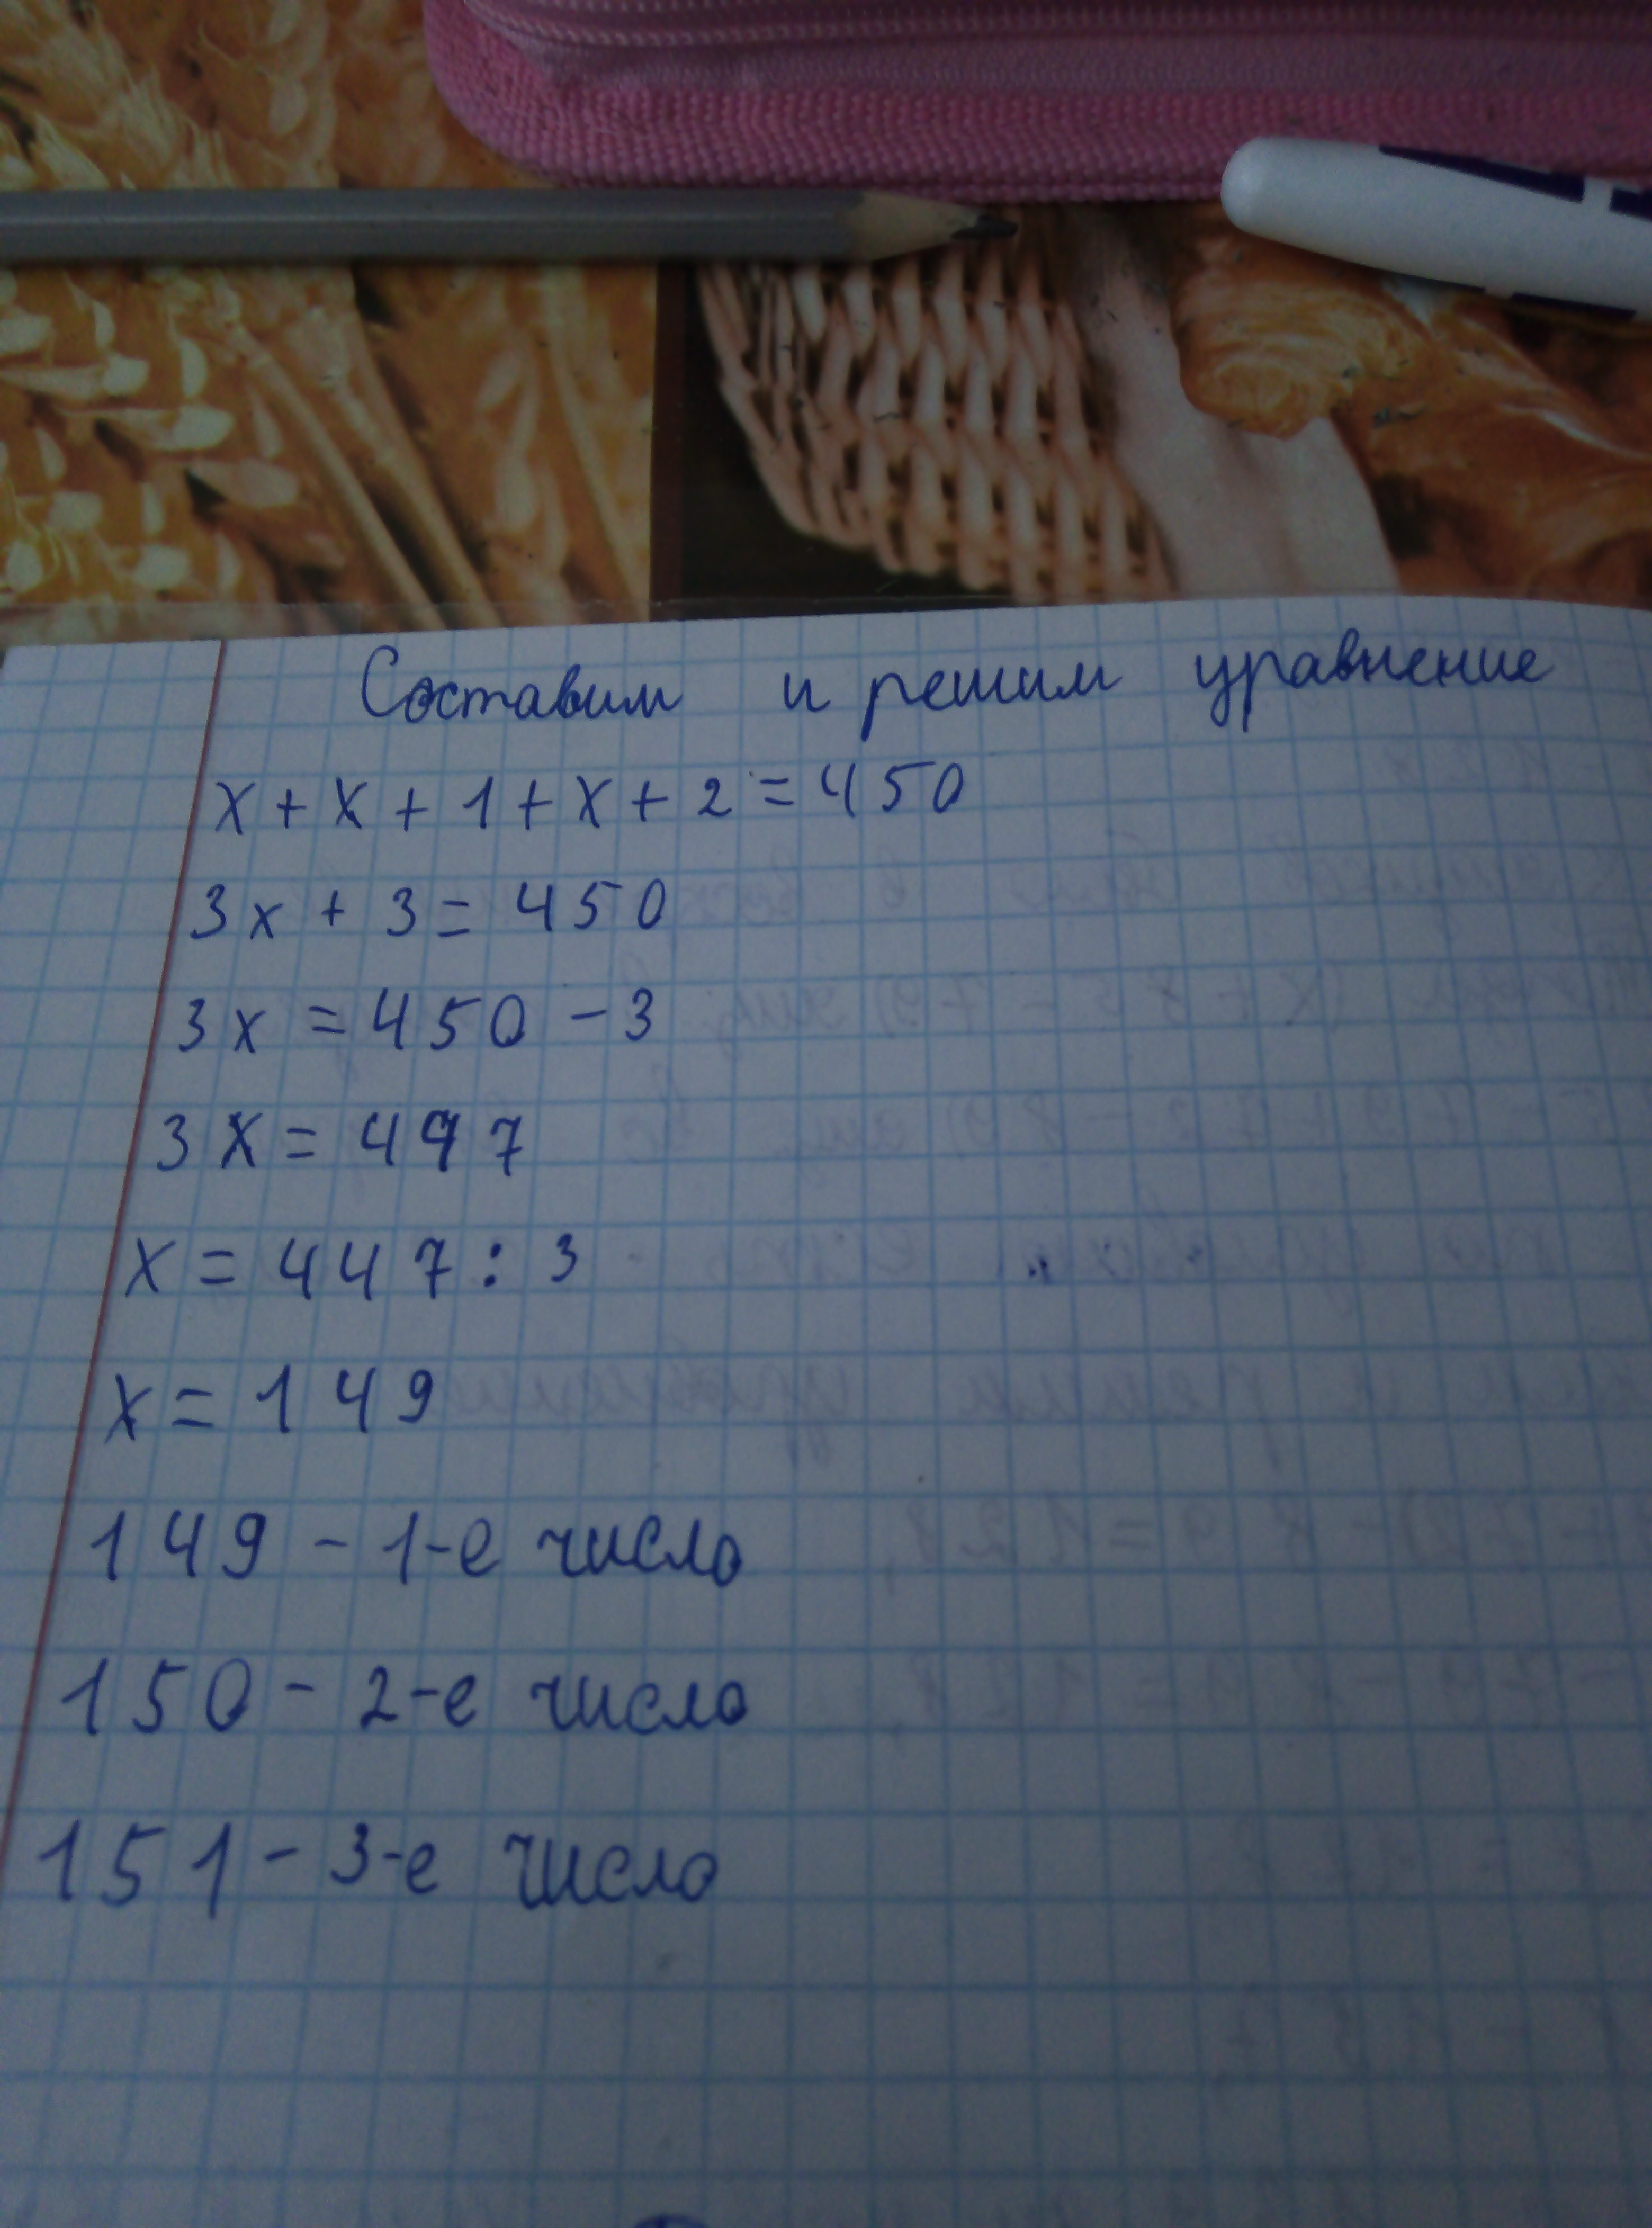 Составим и решим уравнение
x + x + 1 + x + 2 = 450
3x + 3 = 450
3x = 450 - 3
3x = 447
x = 447 : 3
x = 149
149 - 1-е число
150 - 2-е число
151 - 3-е число